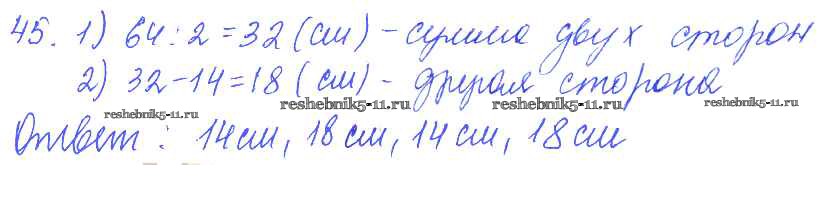 45. 1) 64 : 2 = 32 (см) - сумма двух сторон
2) 32 - 14 = 18 (см) - другая сторона
reshebnik5-11.ru reshebnik5-11.ru reshebnik5-11.ru reshebnik5-11.ru
Ответ: 14 см, 18 см, 14 см, 18 см